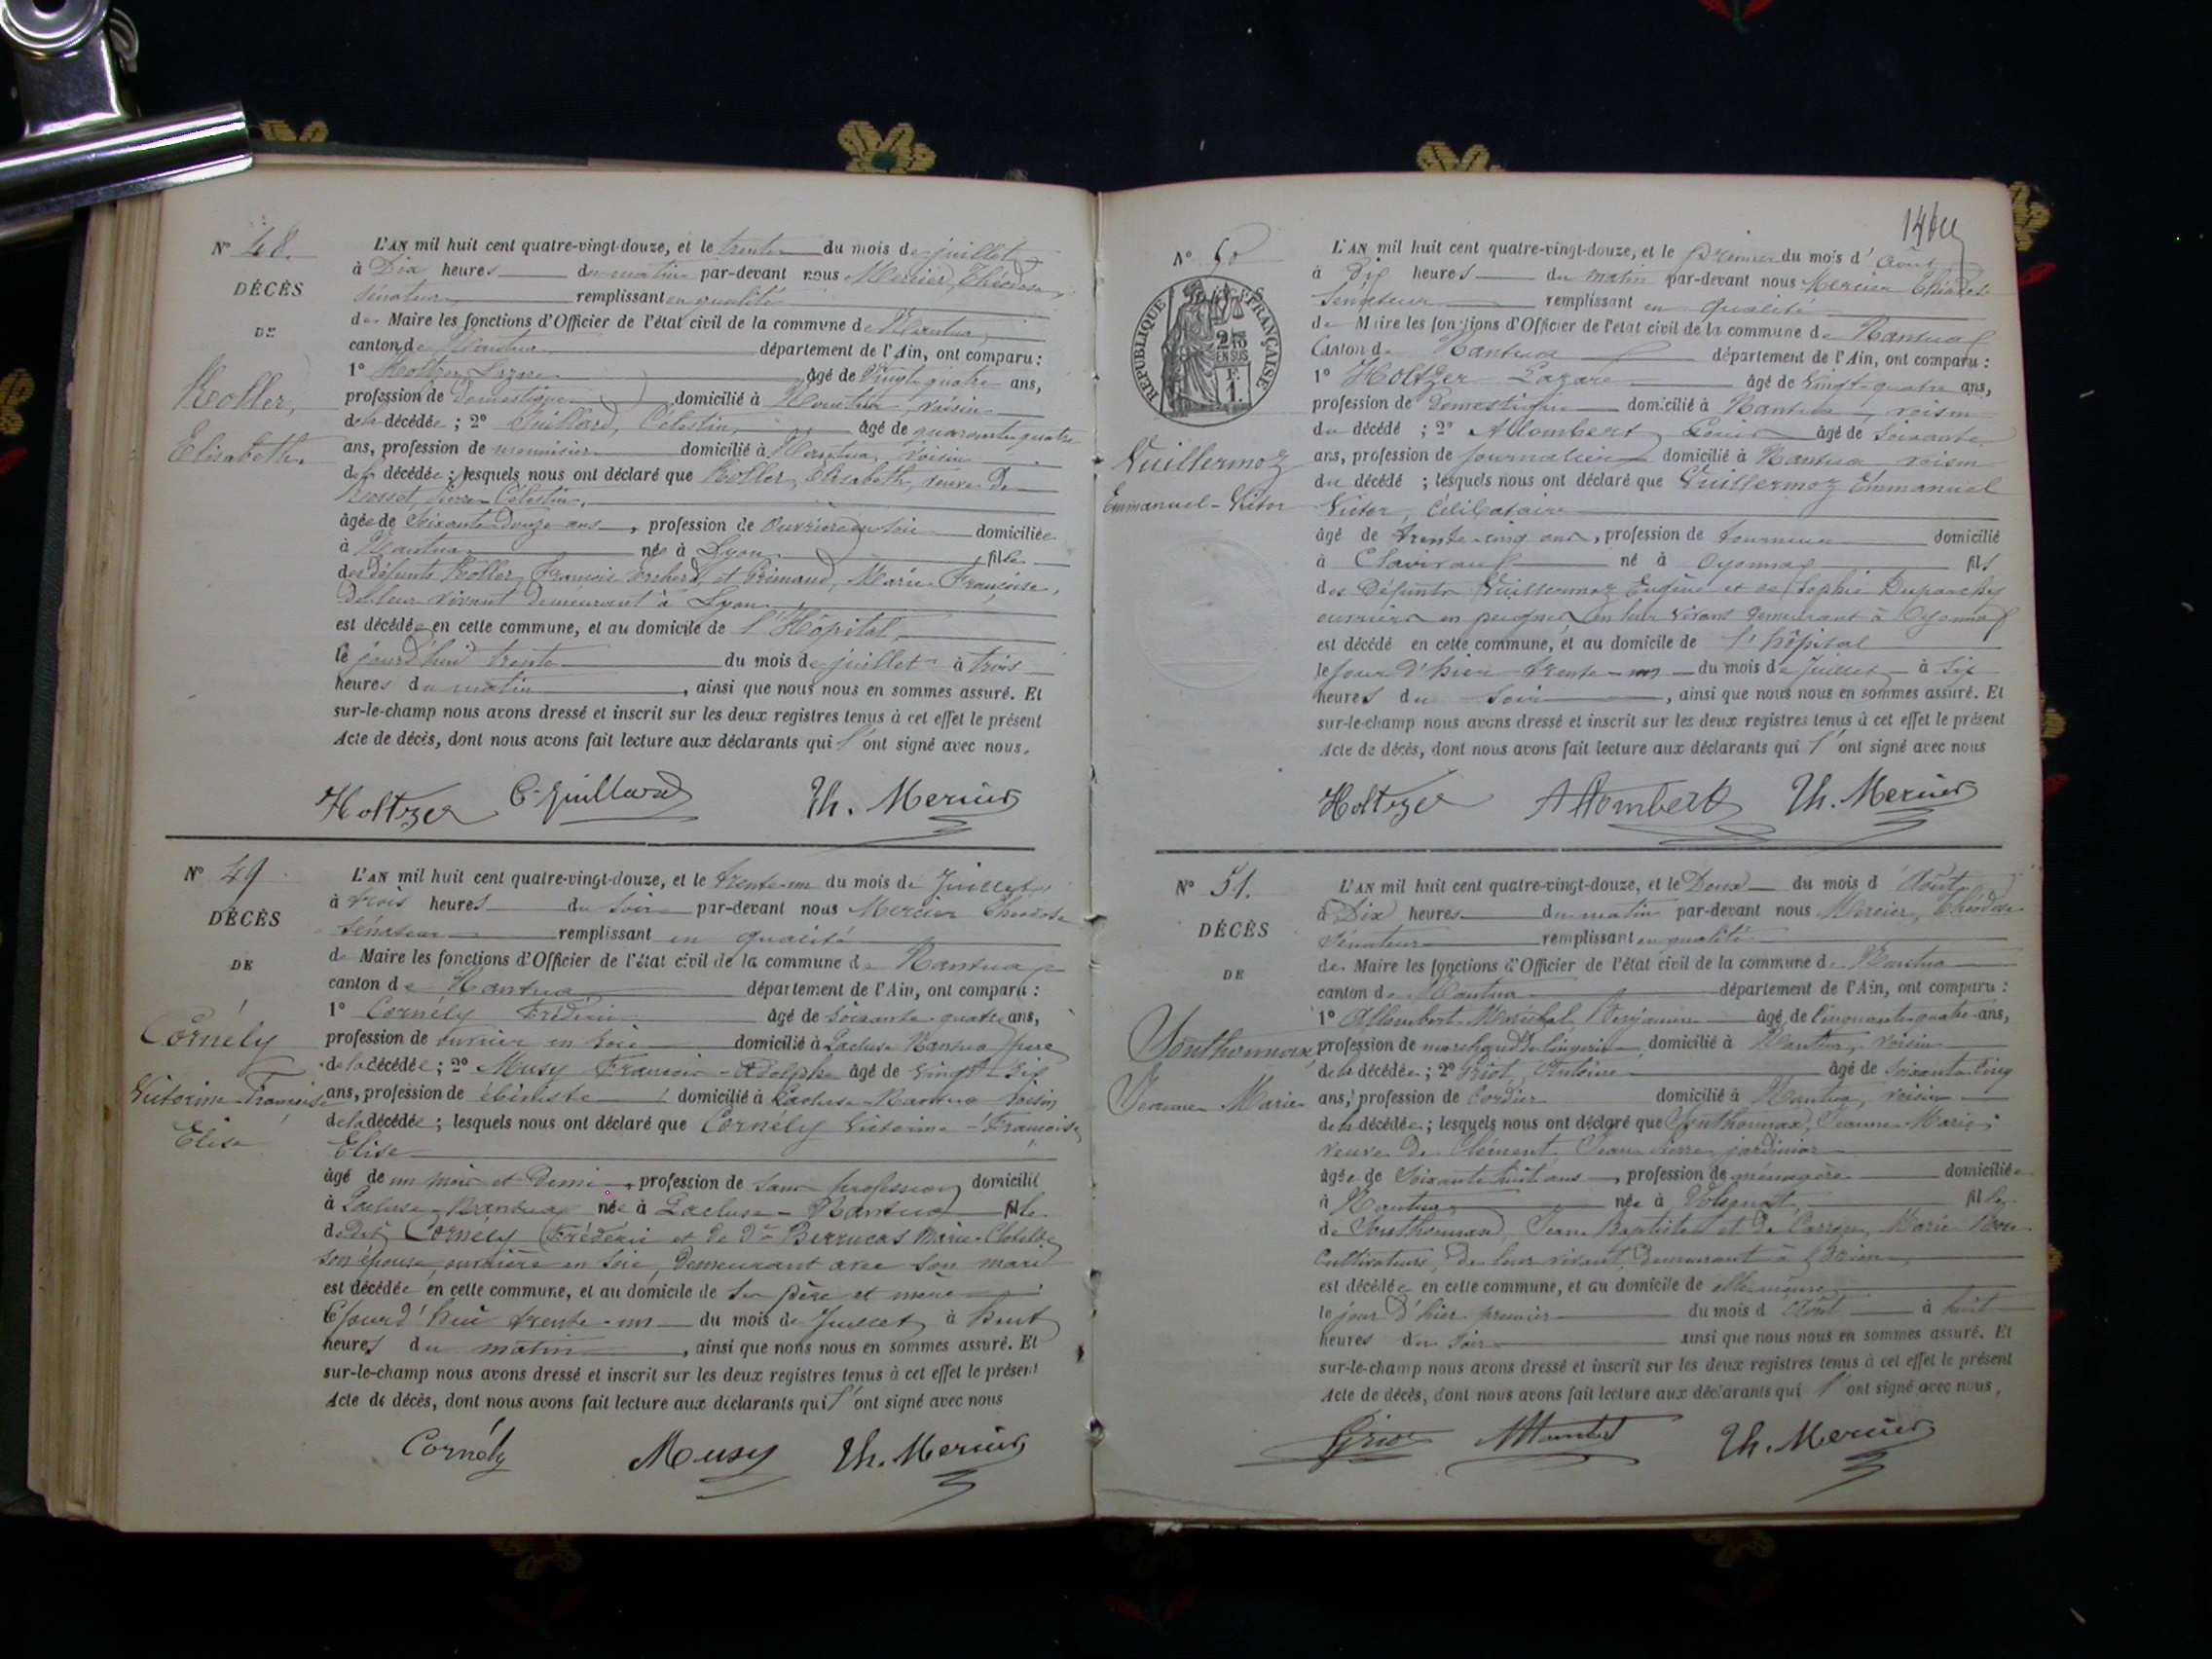 N° 48.
DÉCÈS
DE
Koller,
Elisabeth.
L'AN mil huit cent quatre-vingt-douze, et le trente du mois de juillet
à Dix heures du matin par-devant nous Mercier, Théodose,
Sénateur remplissant en qualité
de Maire les fonctions d'Officier de l'état civil de la commune de Nantua,
canton de Nantua département de l'Ain, ont comparu :
1° Holtzer Lazare âgé de Vingt quatre ans,
profession de Domestique domicilié à Nantua, voisin
de la décédée ; 2° Guillard, Célestin, âgé de quarante quatre
ans, profession de menuisier domicilié à Nantua, voisin
de la décédée ; lesquels nous ont déclaré que Koller, Elisabeth, veuve de
Pierre Célestin,
âgée de Soixante Douze ans, profession de Ouvrière en soie domiciliée
à Nantua née à Lyon fille
des défunts Koller, François et Grimaud, Marie Françoise,
de leur vivant demeurant à Lyon
est décédée en cette commune, et au domicile de l'Hôpital,
le jourd'hui trente du mois de juillet à trois
heures du matin, ainsi que nous nous en sommes assuré. Et
sur-le-champ nous avons dressé et inscrit sur les deux registres tenus à cet effet le présent
Acte de décès, dont nous avons fait lecture aux déclarants qui l'ont signé avec nous.
Holtzer C. Guillard Th. Mercier
N° 49
DÉCÈS
DE
Cornély
Victorine-Françoise
Elise
L'AN mil huit cent quatre-vingt-douze, et le trente-un du mois de Juillet
à trois heures du soir par-devant nous Mercier Théodose
Sénateur remplissant en qualité
de Maire les fonctions d'Officier de l'état civil de la commune de Nantua
canton de Nantua département de l'Ain, ont comparu :
1° Cornély Frédéric âgé de Soixante-quatre ans,
profession de ouvrier en soie domicilié à Lacluse Nantua père
de la décédée ; 2° Musy François-Adolphe âgé de Vingt-six
ans, profession de ébéniste domicilié à Lacluse-Nantua voisin
de la décédée ; lesquels nous ont déclaré que Cornély Victorine-Françoise
Elise
âgé de un mois et Demi, profession de Sans profession domicilié
à Lacluse-Nantua née à Lacluse-Nantua fille
de Dit Cornély Frédéric et de De Berrucas Marie-Clotilde
son épouse, ouvrière en soie, demeurant avec son mari
est décédée en cette commune, et au domicile de ses père et mère
le jourd'hui trente-un du mois de Juillet à huit
heures du matin, ainsi que nous nous en sommes assuré. Et
sur-le-champ nous avons dressé et inscrit sur les deux registres tenus à cet effet le présent
Acte de décès, dont nous avons fait lecture aux déclarants qui l'ont signé avec nous
Cornély Musy Th. Mercier
N° 50
RÉPUBLIQUE FRANÇAISE
EN SUS
Vuillermoz
Emmanuel-Victor
L'AN mil huit cent quatre-vingt-douze, et le Premier du mois d'Août
à Dix heures du matin par-devant nous Mercier Théodose
Sénateur remplissant en qualité
de Maire les fonctions d'Officier de l'état civil de la commune de Nantua
Canton de Nantua département de l'Ain, ont comparu :
1° Holtzer Lazare âgé de Vingt-quatre ans,
profession de Domestique domicilié à Nantua, voisin
du décédé ; 2° Allombert Louis âgé de Soixante
ans, profession de Journalier domicilié à Nantua voisin
du décédé ; lesquels nous ont déclaré que Vuillermoz Emmanuel
Victor, Célibataire
âgé de trente-cinq ans, profession de tourneur domicilié
à né à Oyonnax fils
des Défunts Vuillermoz Eugène et de Sophie
ouvriers en peignes en leur vivant demeurant à Oyonnax
est décédé en cette commune, et au domicile de l'hôpital
le jour d'hier trente-un du mois de Juillet à six
heures du soir, ainsi que nous nous en sommes assuré. Et
sur-le-champ nous avons dressé et inscrit sur les deux registres tenus à cet effet le présent
Acte de décès, dont nous avons fait lecture aux déclarants qui l'ont signé avec nous
Holtzer Allombert Th. Mercier
N° 51.
DÉCÈS
DE
Jouthonnax,
Jeanne Marie
L'AN mil huit cent quatre-vingt-douze, et le Deux du mois d'Août
à Dix heures du matin par-devant nous Mercier, Théodose
Sénateur remplissant en qualité
de Maire les fonctions d'Officier de l'état civil de la commune de Nantua
canton de Nantua département de l'Ain, ont comparu :
1° Allombert-Maréchal, Benjamin âgé de Cinquante-quatre ans,
profession de marchand de lingerie domicilié à Nantua, voisin
de la décédée ; 2° Griot, Antoine âgé de Soixante Cinq
ans, profession de Cordier domicilié à Nantua, voisin
de la décédée ; lesquels nous ont déclaré que Jouthonnax, Jeanne-Marie,
veuve de Clément Jean Pierre jardinier
âgée de Soixante huit ans, profession de ménagère domiciliée
à Nantua née à Volognat, fille
de Jouthonnax, Jean Baptiste et de Marie
Cultivateurs, de leur vivant, demeurant à
est décédée en cette commune, et au domicile de elle-même
le jour d'hier premier du mois d'Août à huit
heures du soir ainsi que nous nous en sommes assuré. Et
sur-le-champ nous avons dressé et inscrit sur les deux registres tenus à cet effet le présent
Acte de décès, dont nous avons fait lecture aux déclarants qui l'ont signé avec nous,
Griot Allombert Th. Mercier